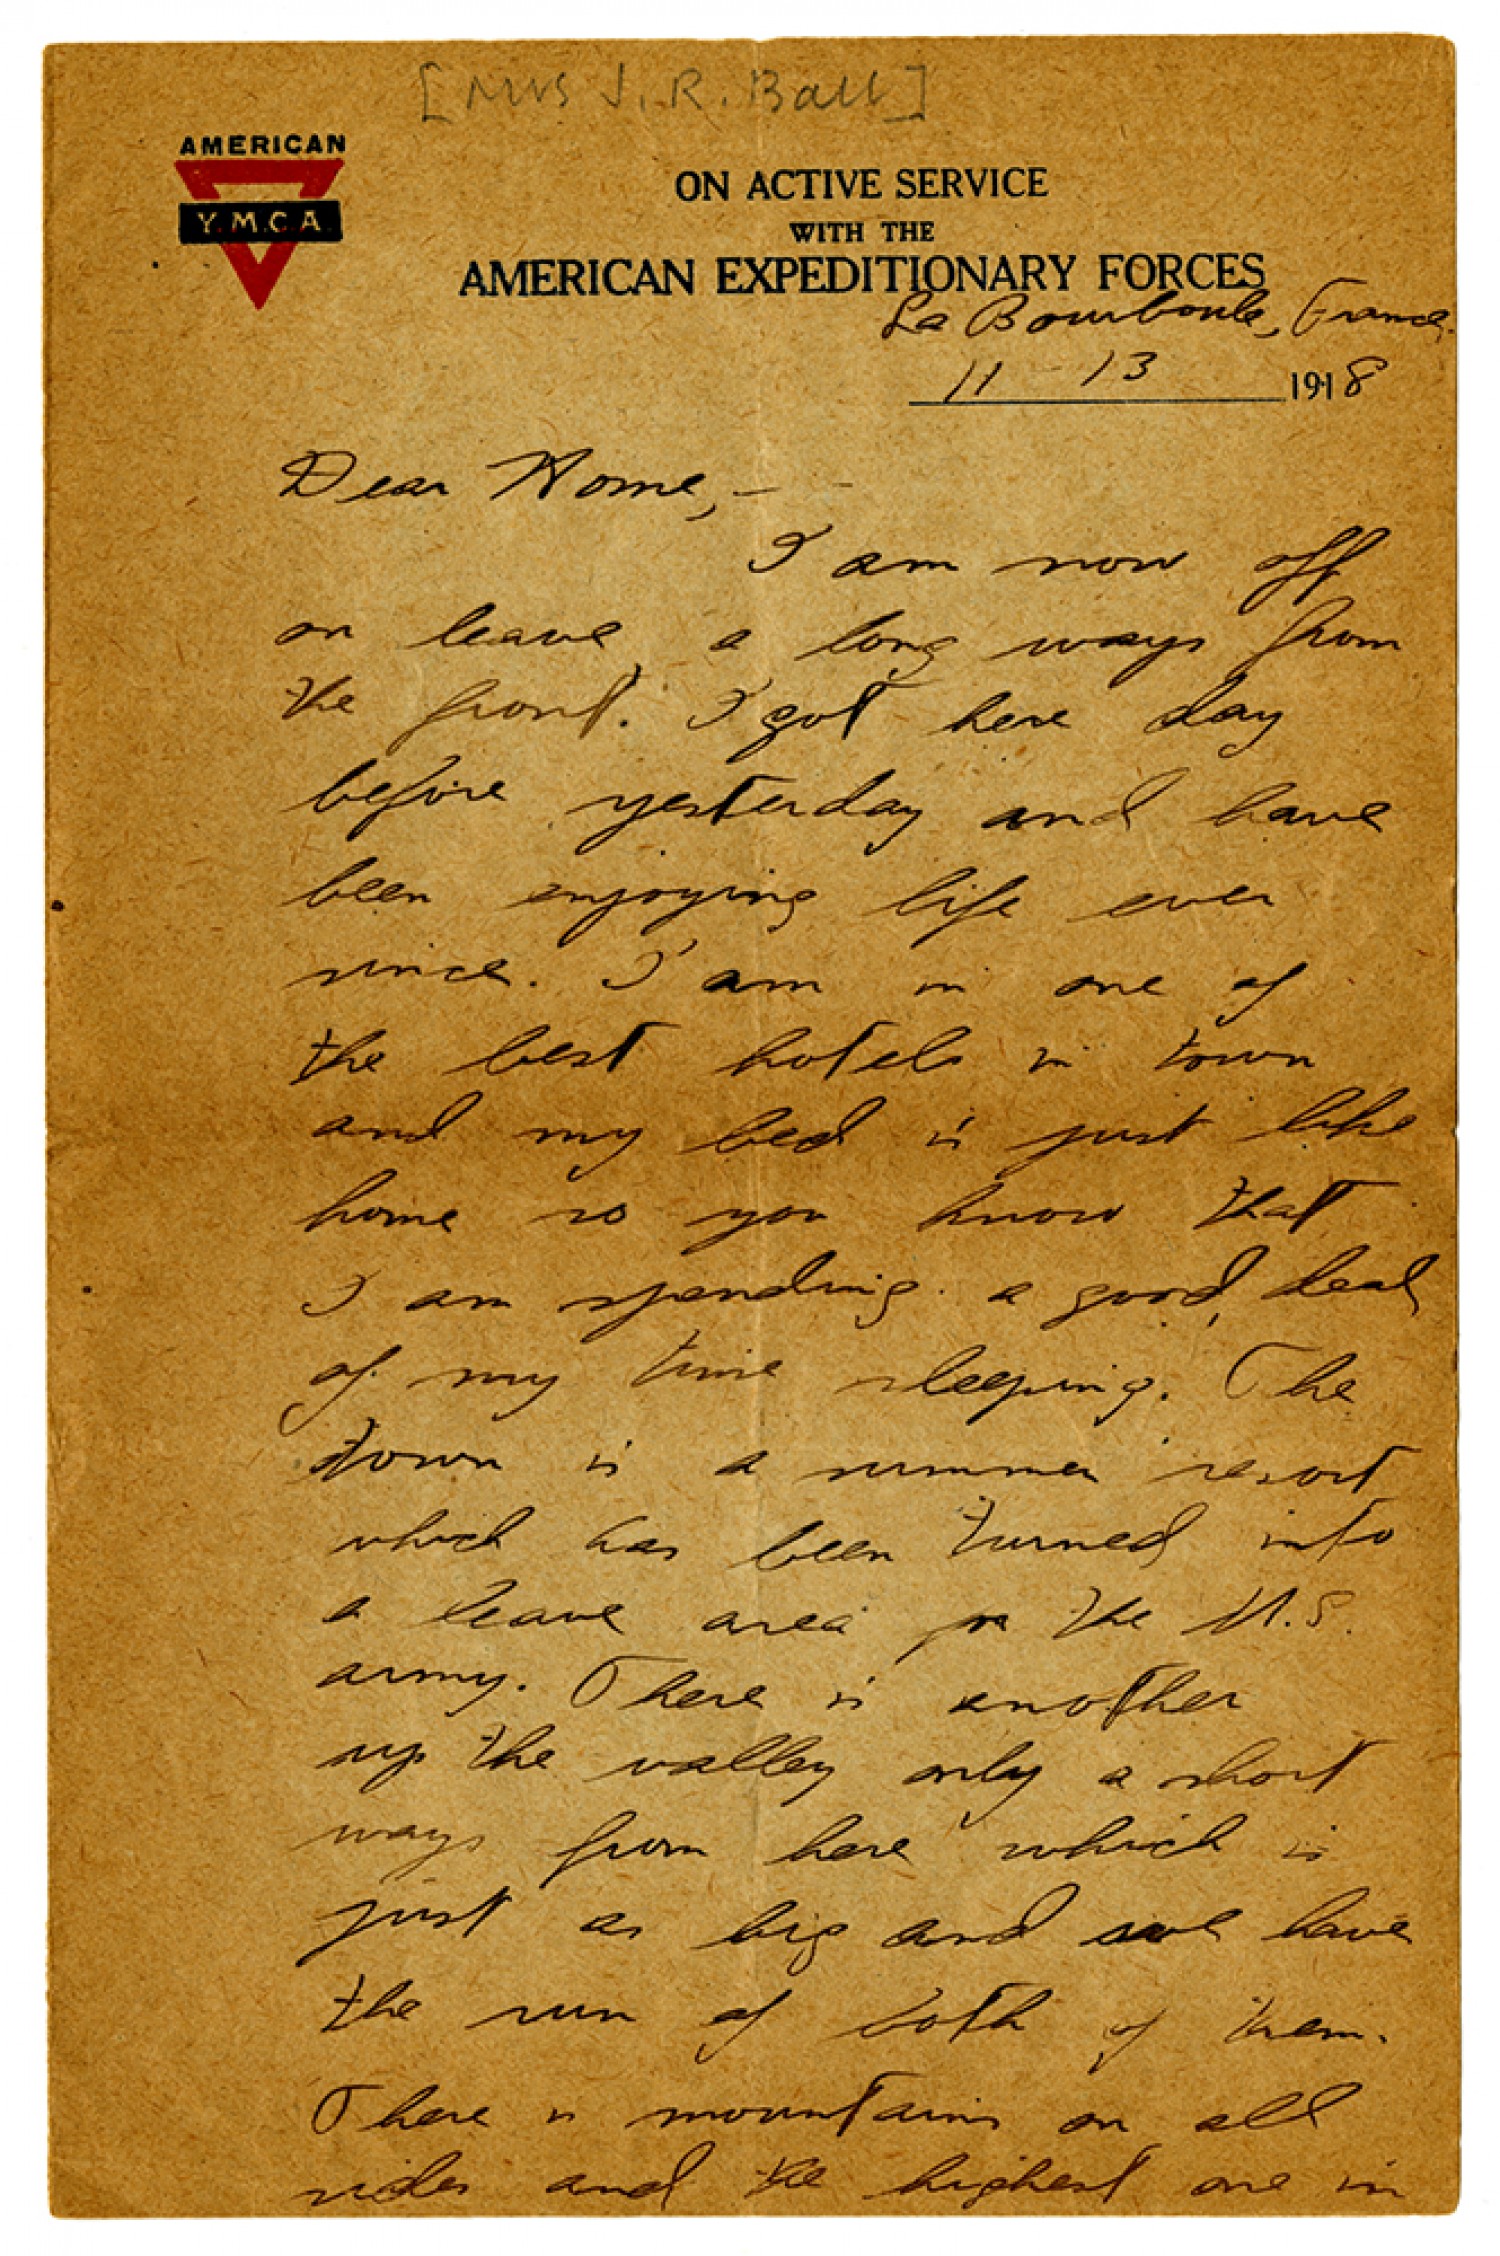 [Mrs J. R. Ball]
AMERICAN
Y.M.C.A.
ON ACTIVE SERVICE
WITH THE
AMERICAN EXPEDITIONARY FORCES
La Bourboule, France.
11-13 1918
Dear Home,-
I am now off
on leave a long ways from
the front. I got here day
before yesterday and have
been enjoying life ever
since. I am in one of
the best hotels in town
and my bed is just like
home so you know that
I am spending a good deal
of my time sleeping. The
town is a summer resort
which has been turned into
a leave area for the U.S.
army. There is another
up the valley only a short
ways from here which is
just as big and we have
the run of both of them.
There is mountains on all
sides and the highest one in